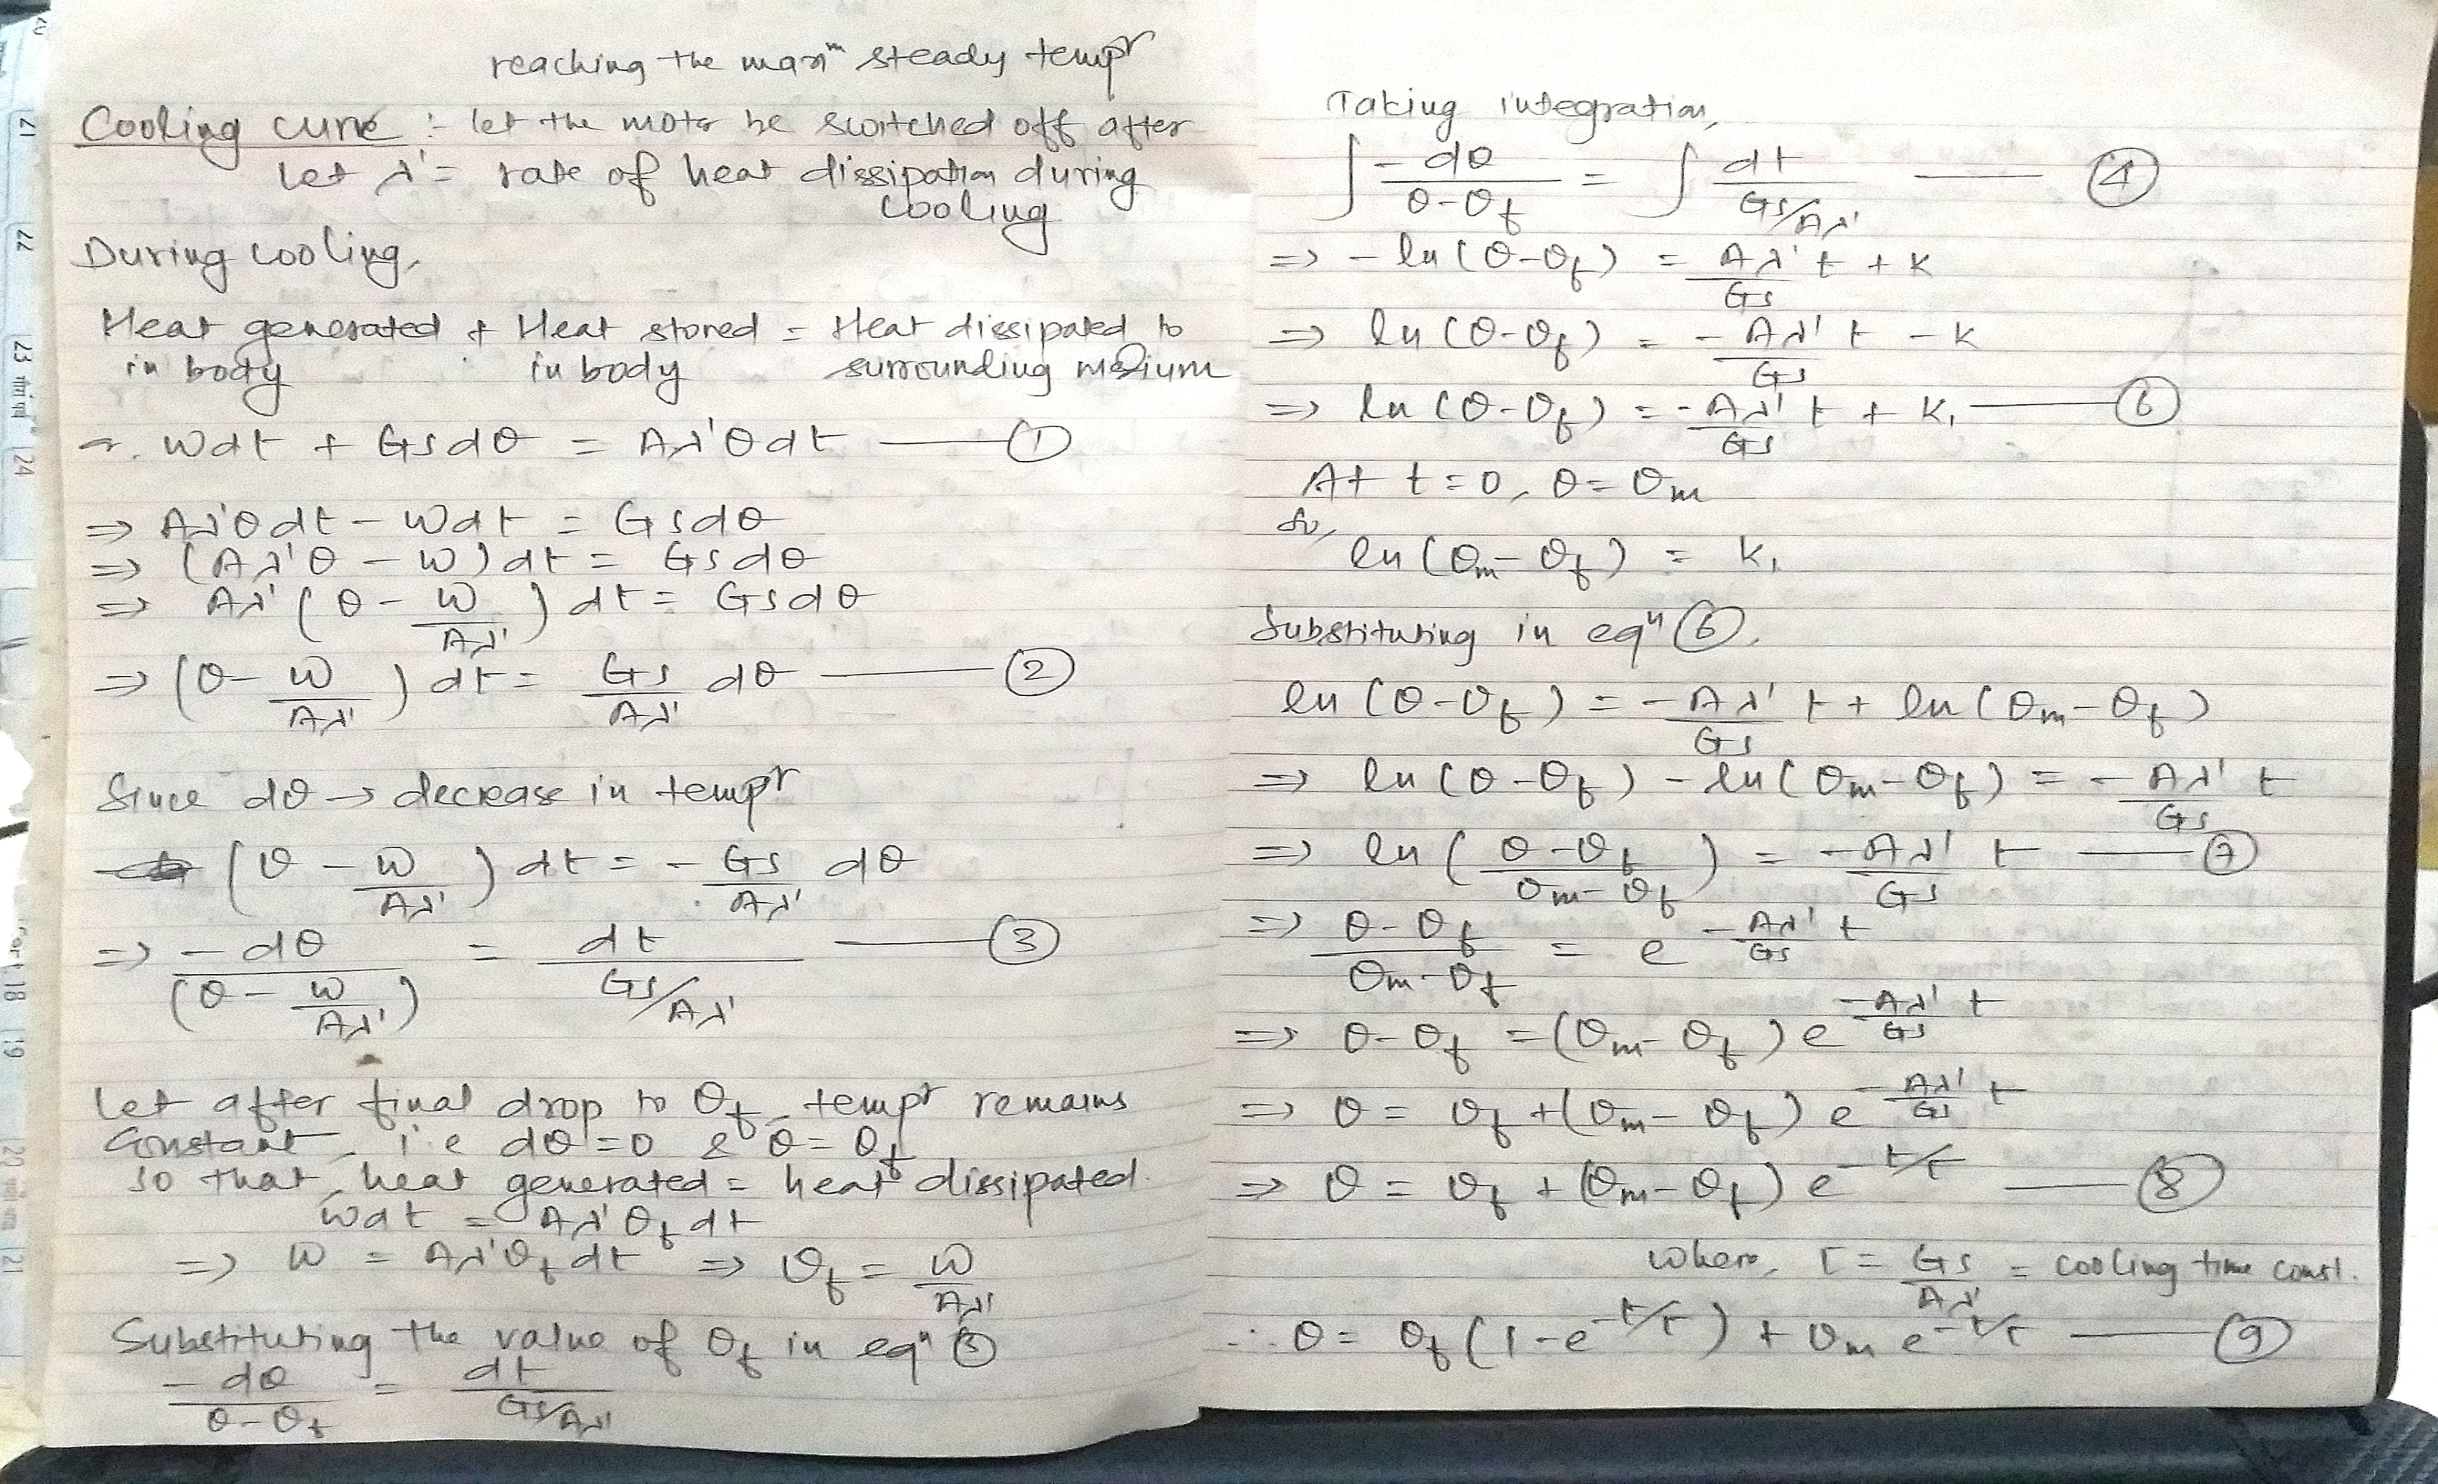 reaching the maxᵐ steady tempʳ
Cooling curve :- let the motor be switched off after
Let λ' = rate of heat dissipation during
cooling
During cooling,
Heat generated + Heat stored = Heat dissipated to
in body in body surrounding medium
Wdt + Gsdθ = Aλ'θdt —— ①
=> Aλ'θdt - Wdt = Gsdθ
=> (Aλ'θ - W)dt = Gsdθ
=> Aλ'(θ - W/Aλ')dt = Gsdθ
=> (θ - W/Aλ')dt = Gs/Aλ' dθ —— ②
Since dθ → decrease in tempʳ
(θ - W/Aλ')dt = - Gs/Aλ' dθ
=> -dθ/(θ - W/Aλ') = dt/(Gs/Aλ') —— ③
Let after final drop to θf, tempʳ remains
constant, i.e dθ = 0 & θ = θf
so that, heat generated = heat dissipated.
Wdt = Aλ'θf dt
=> W = Aλ'θf dt => θf = W/Aλ'
Substituting the value of θf in eqⁿ ③
-dθ/(θ-θf) = dt/(Gs/Aλ')
Taking integration,
∫ -dθ/(θ-θf) = ∫ dt/(Gs/Aλ') —— ④
=> - ln(θ-θf) = Aλ'/Gs t + K
=> ln(θ-θf) = - Aλ'/Gs t - K
=> ln(θ-θf) = - Aλ'/Gs t + K₁ —— ⑥
At t=0, θ=θm
So,
ln(θm-θf) = K₁
Substituting in eqⁿ ⑥,
ln(θ-θf) = - Aλ'/Gs t + ln(θm-θf)
=> ln(θ-θf) - ln(θm-θf) = - Aλ'/Gs t
=> ln((θ-θf)/(θm-θf)) = - Aλ'/Gs t —— ⑦
=> (θ-θf)/(θm-θf) = e^(-Aλ'/Gs t)
=> θ-θf = (θm-θf) e^(-Aλ'/Gs t)
=> θ = θf + (θm-θf) e^(-Aλ'/Gs t)
=> θ = θf + (θm-θf) e^(-t/τ) —— ⑧
where, τ = Gs/Aλ' = cooling time const.
∴ θ = θf(1-e^(-t/τ)) + θm e^(-t/τ) —— ⑨
21
22
23
24
18
19
20
21